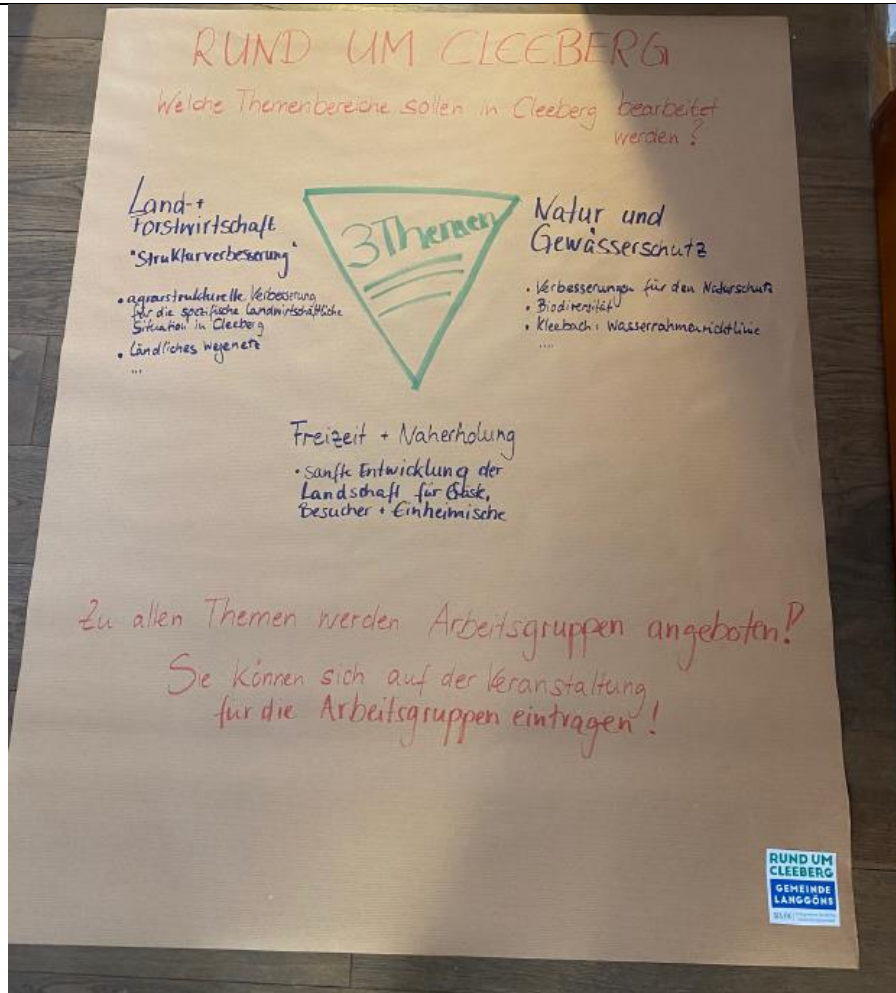 RUND UM CLEEBERG
Welche Themenbereiche sollen in Cleeberg bearbeitet
werden?
Land- +
Forstwirtschaft
"Strukturverbesserung"
• agrarstrukturelle Verbesserung
für die spezifische Landwirtschaftliche
Situation in Cleeberg
• Ländliches Wegenetz
...
3 Themen
Natur und
Gewässerschutz
• Verbesserungen für den Naturschutz
• Biodiversität
• Kleebach: Wasserrahmenrichtlinie
....
Freizeit + Naherholung
• sanfte Entwicklung der
Landschaft für Gäste,
Besucher + Einheimische
Zu allen Themen werden Arbeitsgruppen angeboten!
Sie können sich auf der Veranstaltung
für die Arbeitsgruppen eintragen!
RUND UM
CLEEBERG
GEMEINDE
LANGGÖNS